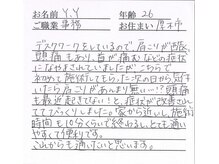 お名前 Y.Y 年齢 26
ご職業 事務 お住まい 厚木市
デスクワークをしているので、肩こりが酷く、
頭痛もあり、首が痛むなどの症状
になやまされていましたが、こちらで
初めて施術してもらった次の日から
たいした肩こりがあまり無い…!?頭痛
も最近起きてない!と、症状が改善され
ててびっくりしました。家から近いし、施術
時間も10分くらいで終わるし、とても通い
やすくて便利です。
これからも通いたいと思います。